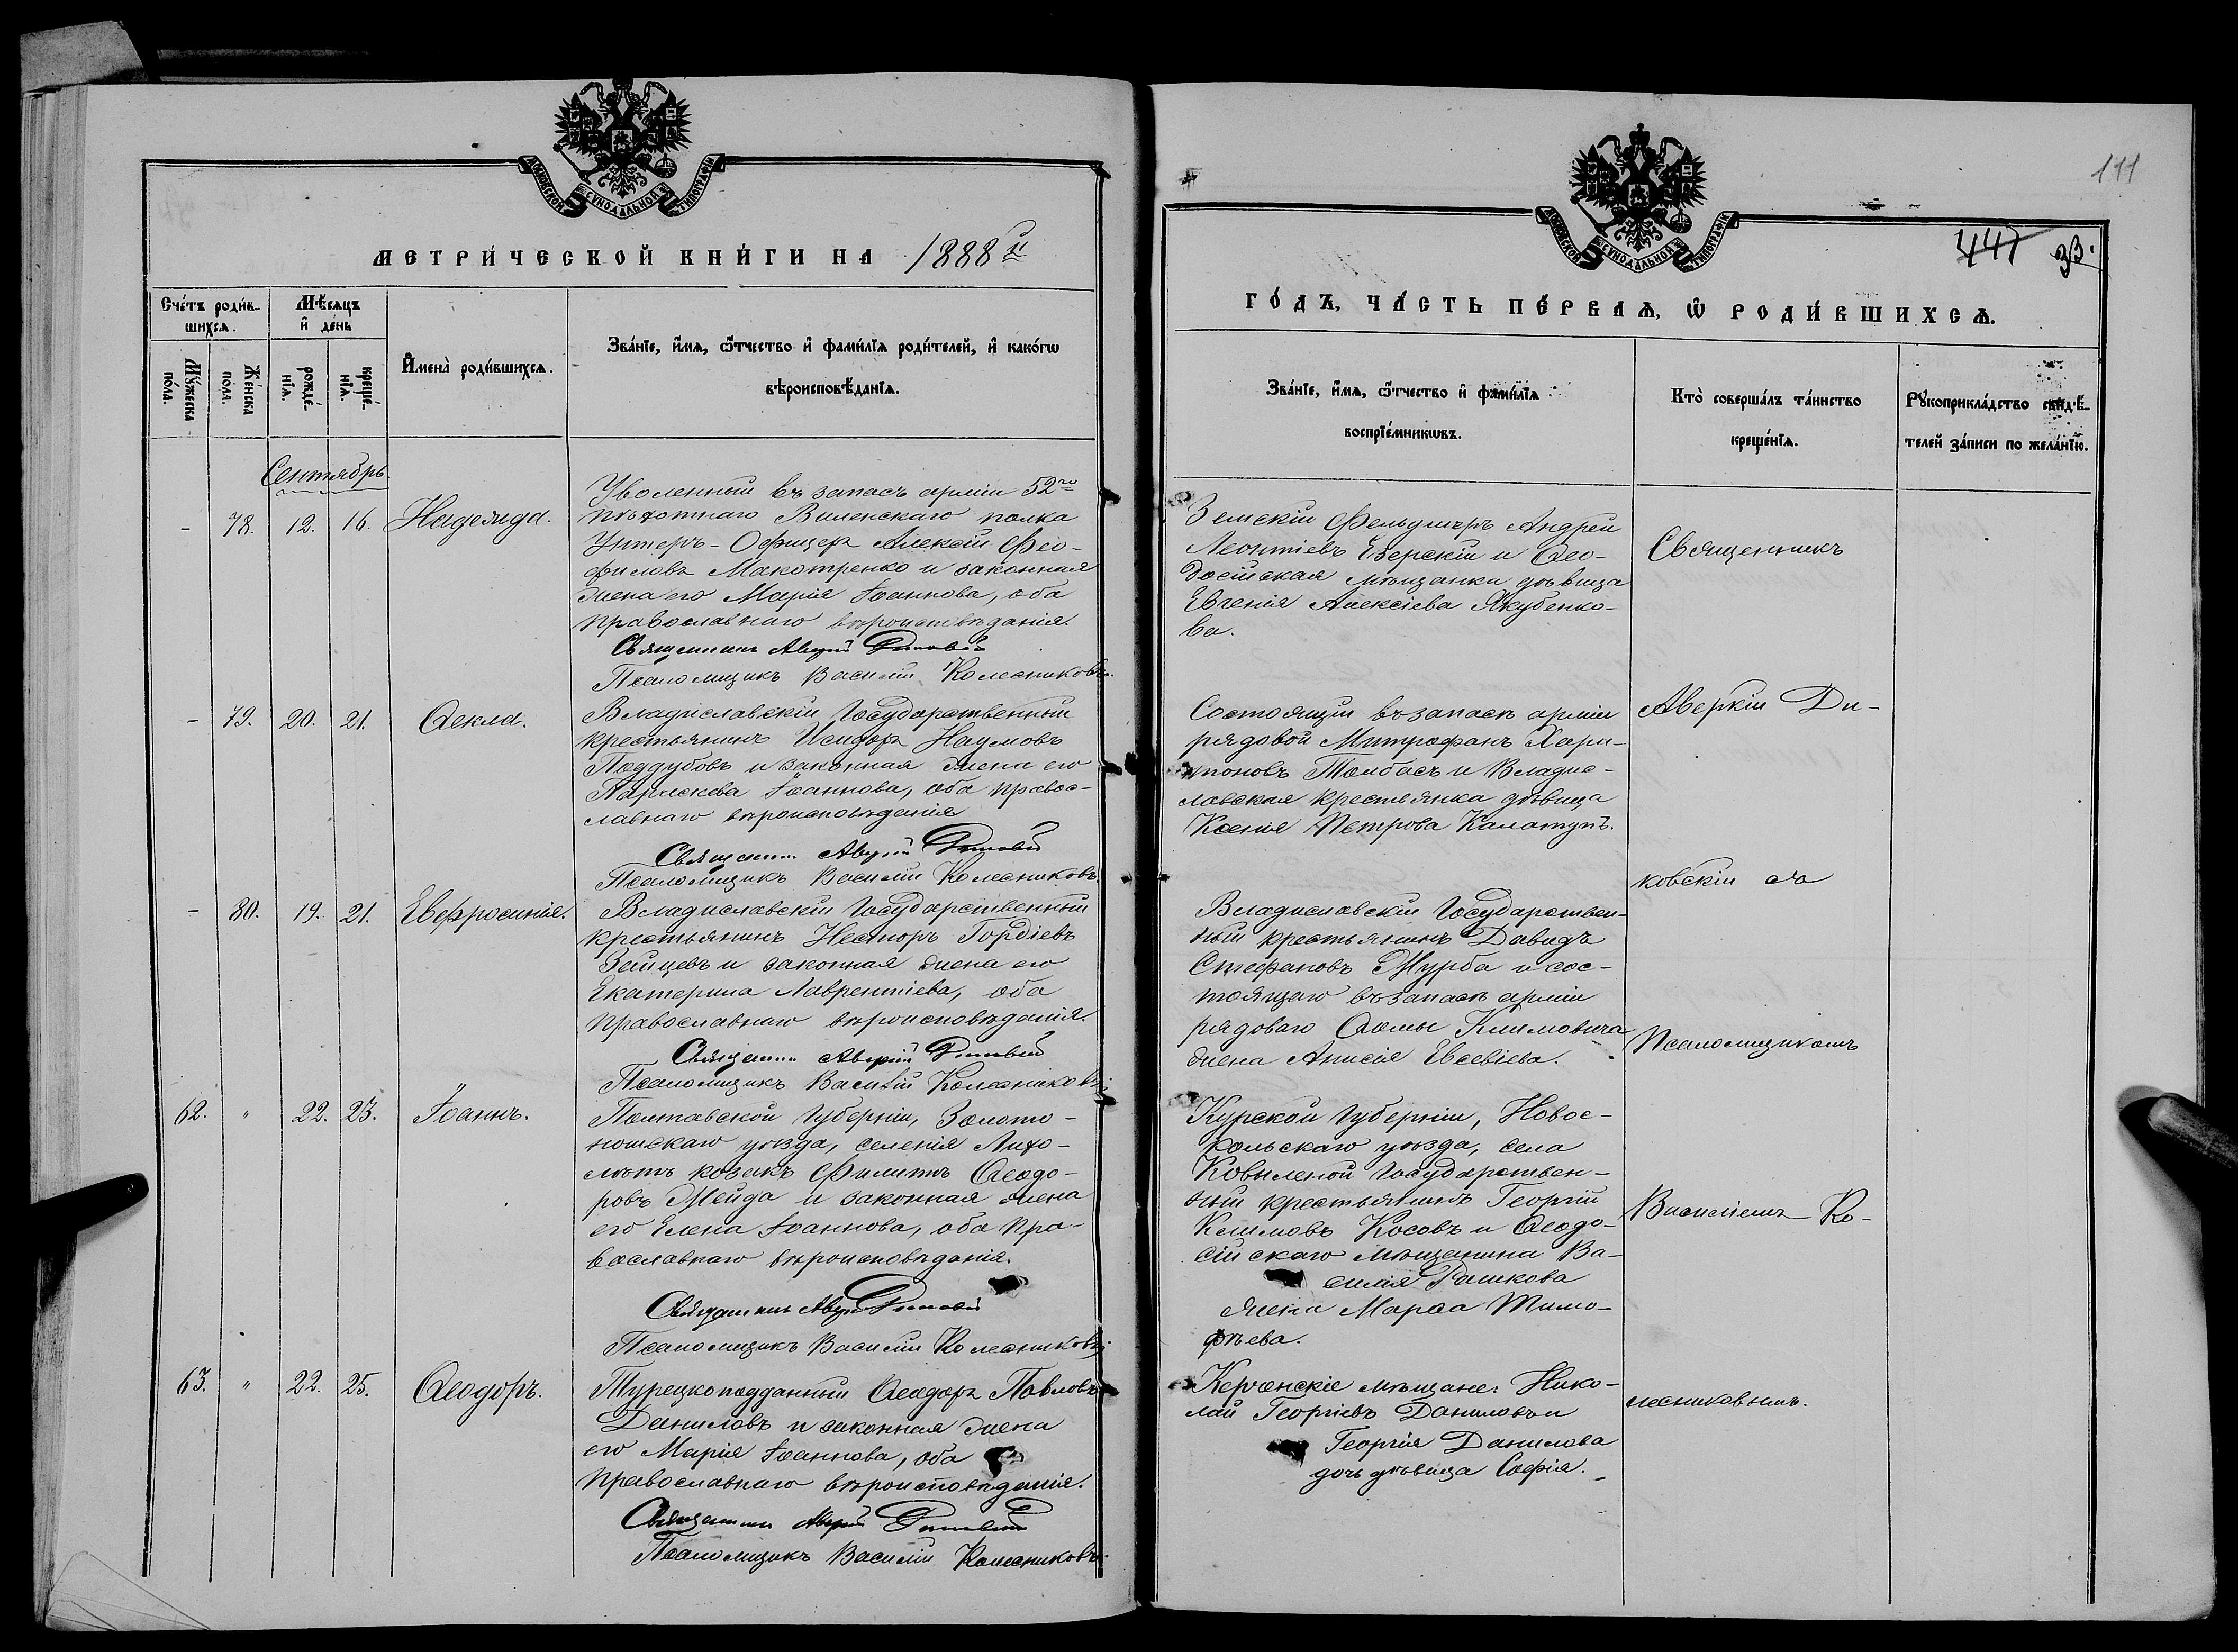 МОСКОВСКОЙ СѴНОДАЛЬНОЙ ТИПОГРАФІИ
МЕТРИ́ЧЕСКОЙ КНИ́ГИ НА 1888й
Сче́тъ роди́в-
шихся.
Мѣ́сяцъ
и҆ де́нь
Мꙋ́жеска
по́ла.
Же́нска
по́ла.
рожде́-
нїѧ.
креще́-
нїѧ.
И҆мена̀ роди́вшихсѧ.
Зва́нїе, и҆́мѧ, ѻ҆́тчество и҆ фами́лїѧ роди́телей, и҆ како́гѡ
вѣроисповѣ́данїѧ.
Сентябрь
- 78. 12. 16. Надежда.
Уволенный въ запасъ арміи 52го
пѣхотнаго Виленскаго полка
Унтеръ-Офицеръ Алексій Фео-
филовъ Макотренко и законная
жена его Марія Іоаннова, оба
православнаго вѣроисповѣданія.
Священникъ Аверкій
Псаломщикъ Василій Колесниковъ.
- 79. 20. 21. Ѳекла.
Владиславскій Государственный
крестьянинъ Исидоръ Наумовъ
Поддубовъ и законная жена его
Параскева Іоаннова, оба правос-
лавнаго вѣроисповѣданія
Священникъ Аверкій
Псаломщикъ Василій Колесниковъ.
- 80. 19. 21. Евфросинія.
Владиславскій Государственный
крестьянинъ Несторъ Гордіевъ
Зайцевъ и законная жена его
Екатерина Лаврентіева, оба
православнаго вѣроисповѣданія.
Священникъ Аверкій
Псаломщикъ Василій Колесниковъ.
62. " 22. 23. Іоаннъ.
Полтавской Губерніи, Золото-
ношскаго уѣзда, селенія Липо-
козакъ Филиппъ Ѳеодо-
ровъ и законная жена
его Елена Іоаннова, оба пра-
вославнаго вѣроисповѣданія.
Священникъ Аверкій
Псаломщикъ Василій Колесниковъ.
63. " 22. 25. Ѳеодоръ.
Турецкоподданный Ѳеодоръ Павловъ
Даниловъ и законная жена
его Марія Іоаннова, оба
православнаго вѣроисповѣданія.
Священникъ Аверкій
Псаломщикъ Василій Колесниковъ.
111
МОСКОВСКОЙ СѴНОДАЛЬНОЙ ТИПОГРАФІИ
447
ГО́ДЪ, ЧА́СТЬ ПЕ́РВАѦ, Ѡ҆ РОДИ́ВШИХСѦ.
Зва́нїе, и҆́мѧ, ѻ҆́тчество и҆ фами́лїѧ
воспрїе́мникѡвъ.
Кто̀ соверша́лъ та́инство
креще́нїѧ.
Рꙋкоприкла́дство свидѣ́-
телей за́писи по жела́нїю.
Земскій Фельдшеръ Андрей
Леонтіевъ и Ѳео-
досійская мѣщанка дѣвица
Евгенія Алексіева Якубенко-
ва.
Состоящій въ запасѣ арміи
рядовой Митрофанъ Хари-
тоновъ Толбасъ и Владис-
лавская крестьянка дѣвица
Ксенія Петрова
Владиславскій Государствен-
ный крестьянинъ Давидъ
Стефановъ Журба и сос-
тоящаго въ запасѣ арміи
рядоваго Ѳомы Климовича
жена Анисія Евсевіева.
Курской Губерніи, Новос-
кольскаго уѣзда, села
Государствен-
ный крестьянинъ Георгій
Климовъ Косовъ и Ѳеодо-
сійскаго мѣщанина Ва-
силія Рашкова
жена Марѳа Тимо-
фѣева.
Керченскіе мѣщане: Нико-
лай Георгіевъ Даниловъ и
Георгія Данилова
дочь дѣвица Софія.
Священникъ
Аверкій Ди-
ковскій съ
Псаломщикомъ
Василіемъ Ко-
лесниковымъ.